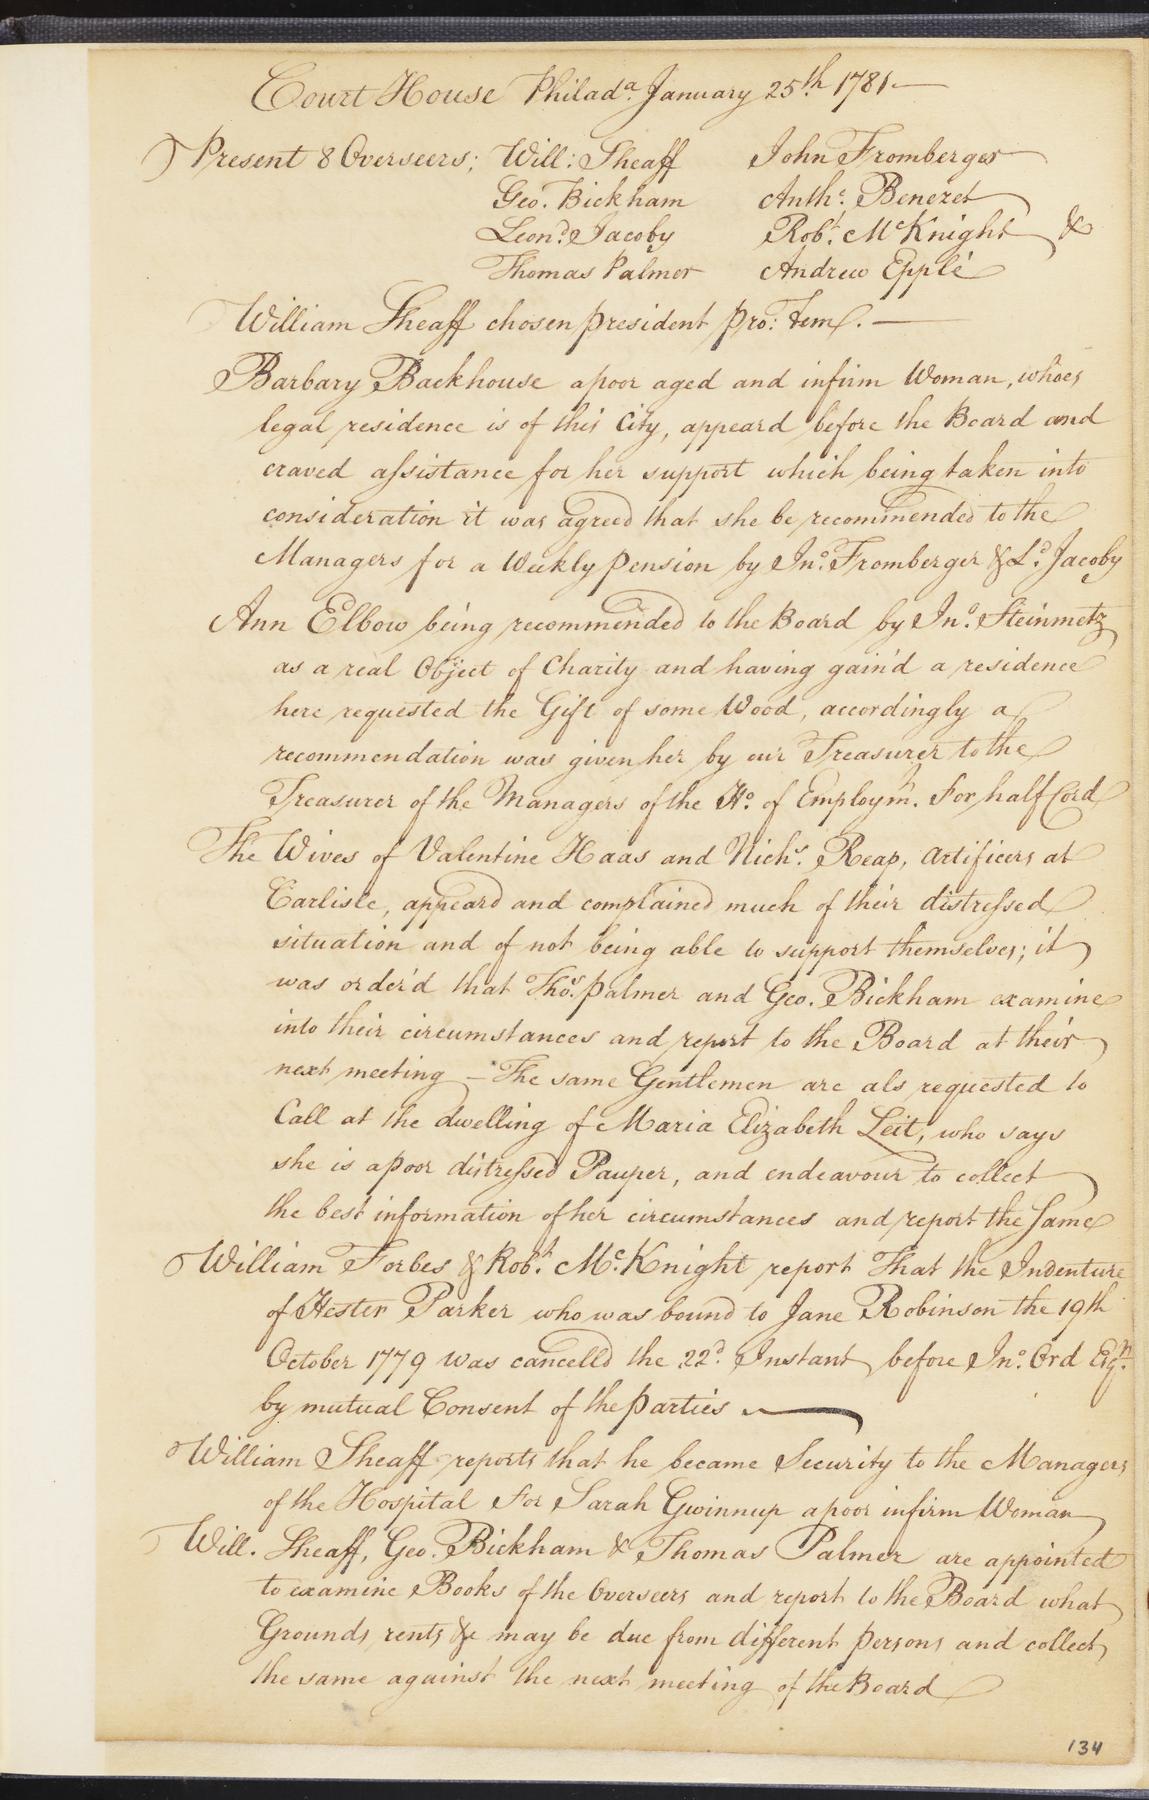 Court House Philada. January 25th 1781—
Present 8 Overseers; Will: Sheaff John Fromberger
Geo. Bickham Anthy. Benezet
Leond. Jacoby Robt. McKnight &
Thomas Palmer Andrew Epplé
William Sheaff chosen president pro: tem. —
Barbary Backhouse a poor aged and infirm Woman, whoes
legal residence is of this City, appeard before the Board and
craved assistance for her support which being taken into
consideration it was agreed that she be recommended to the
Managers for a Weekly pension by Jno. Fromberger & Ld. Jacoby
Ann Elbow being recommended to the Board by Jno. Steinmetz
as a real Object of Charity and having gain'd a residence
here requested the Gift of some Wood, accordingly a
recommendation was given her by our Treasurer to the
Treasurer of the Managers of the Ho. of Employmt. For half Cord
The Wives of Valentine Haas and Nichs. Reap, Artificers at
Carlisle, appeard and complained much of their distressed
situation and of not being able to support themselves; it
was order'd that Thos. Palmer and Geo. Bickham examine
into their circumstances and report to the Board at their
next meeting — The same Gentlemen are als requested to
Call at the dwelling of Maria Elizabeth Leit, who says
she is a poor distressed Pauper, and endeavour to collect
the best information of her circumstances and report the same
William Forbes & Robt. McKnight report That the Indenture
of Hester Parker who was bound to Jane Robinson the 19th
October 1779 was cancelld the 22d. Instant before Jno. Ord Esqr.
by mutual Consent of the parties —
William Sheaff reports that he became Security to the Managers
of the Hospital For Sarah Gwinnup a poor infirm Woman
Will. Sheaff, Geo. Bickham & Thomas Palmer are appointed
to examine Books of the Overseers and report to the Board what
Grounds rents &c may be due from different persons and collect
the same against the next meeting of the Board
134